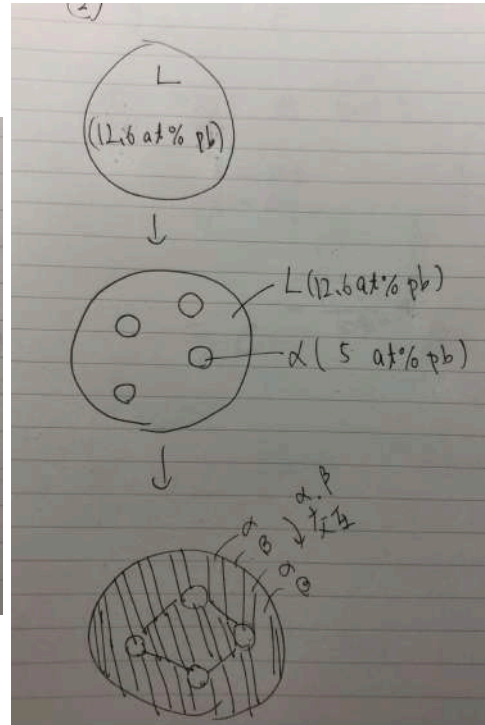 (2)
L
(12.6 at% pb)
L (12.6 at% pb)
α ( 5 at% pb)
α.β
α
β
α
β